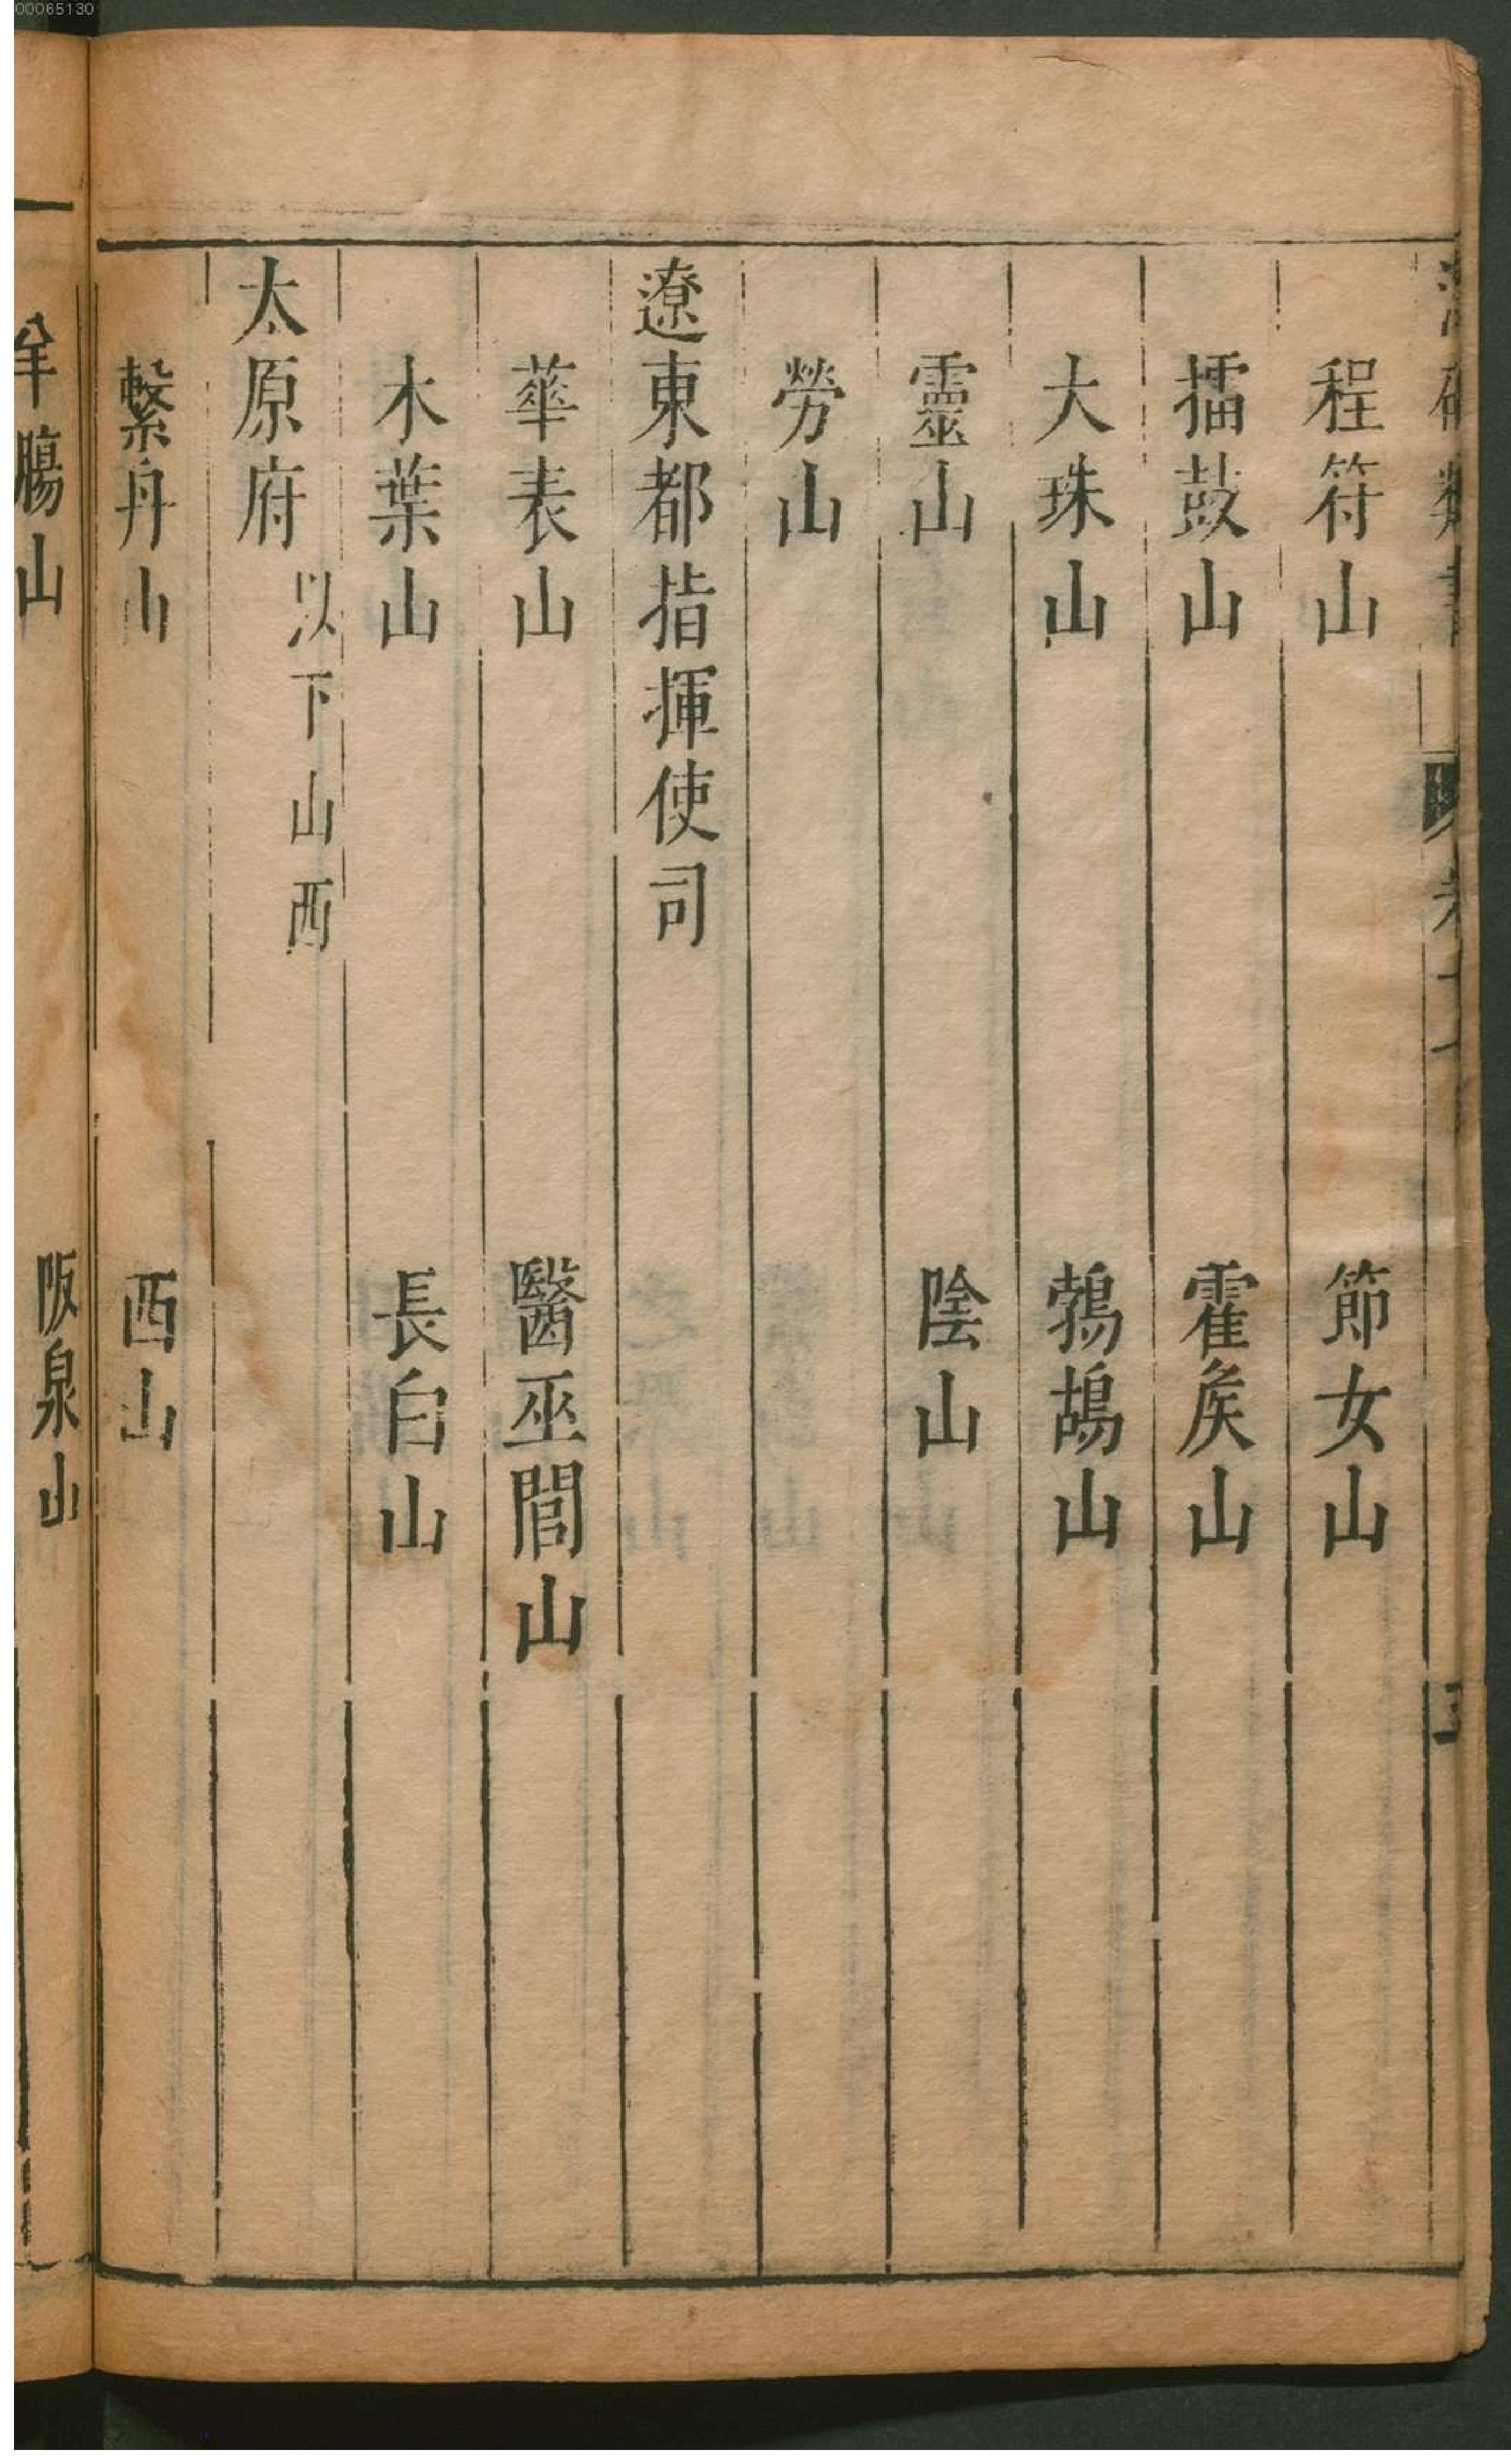 00065130
程符山　節女山
擂鼓山　霍矦山
大珠山　鵓鴣山
靈山　陰山
勞山
遼東都指揮使司
華表山　醫巫閭山
木葉山　長白山
太原府　以下山西
繫舟山　西山
羊腸山　阪泉山